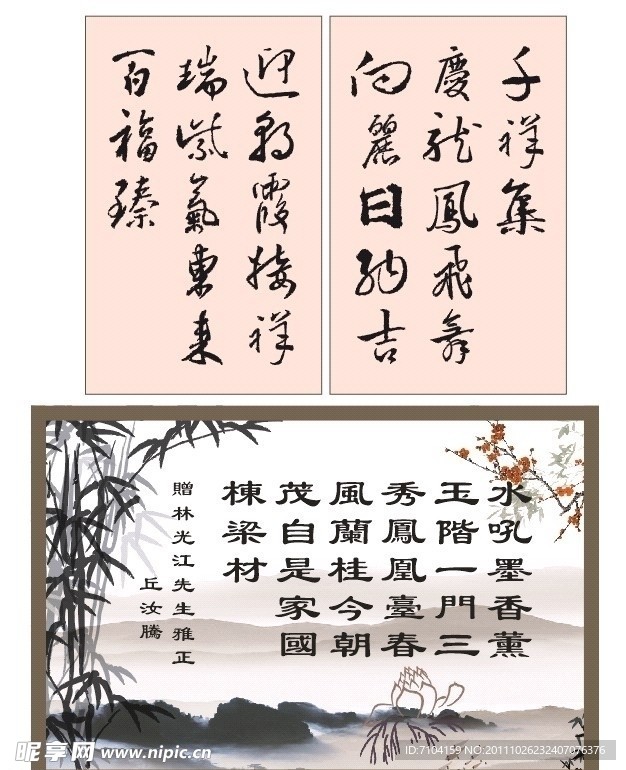 千祥集
慶龍鳳飛舞
向麗日納吉
迎朝霞接祥
瑞紫氣東來
百福臻
水吼墨香薰
玉階一門三
秀鳳凰臺春
風蘭桂今朝
茂自是家國
棟梁材
贈林光江先生雅正
丘汝騰
昵享网 www.nipic.cn
ID:7104159 NO:20111026232407076376